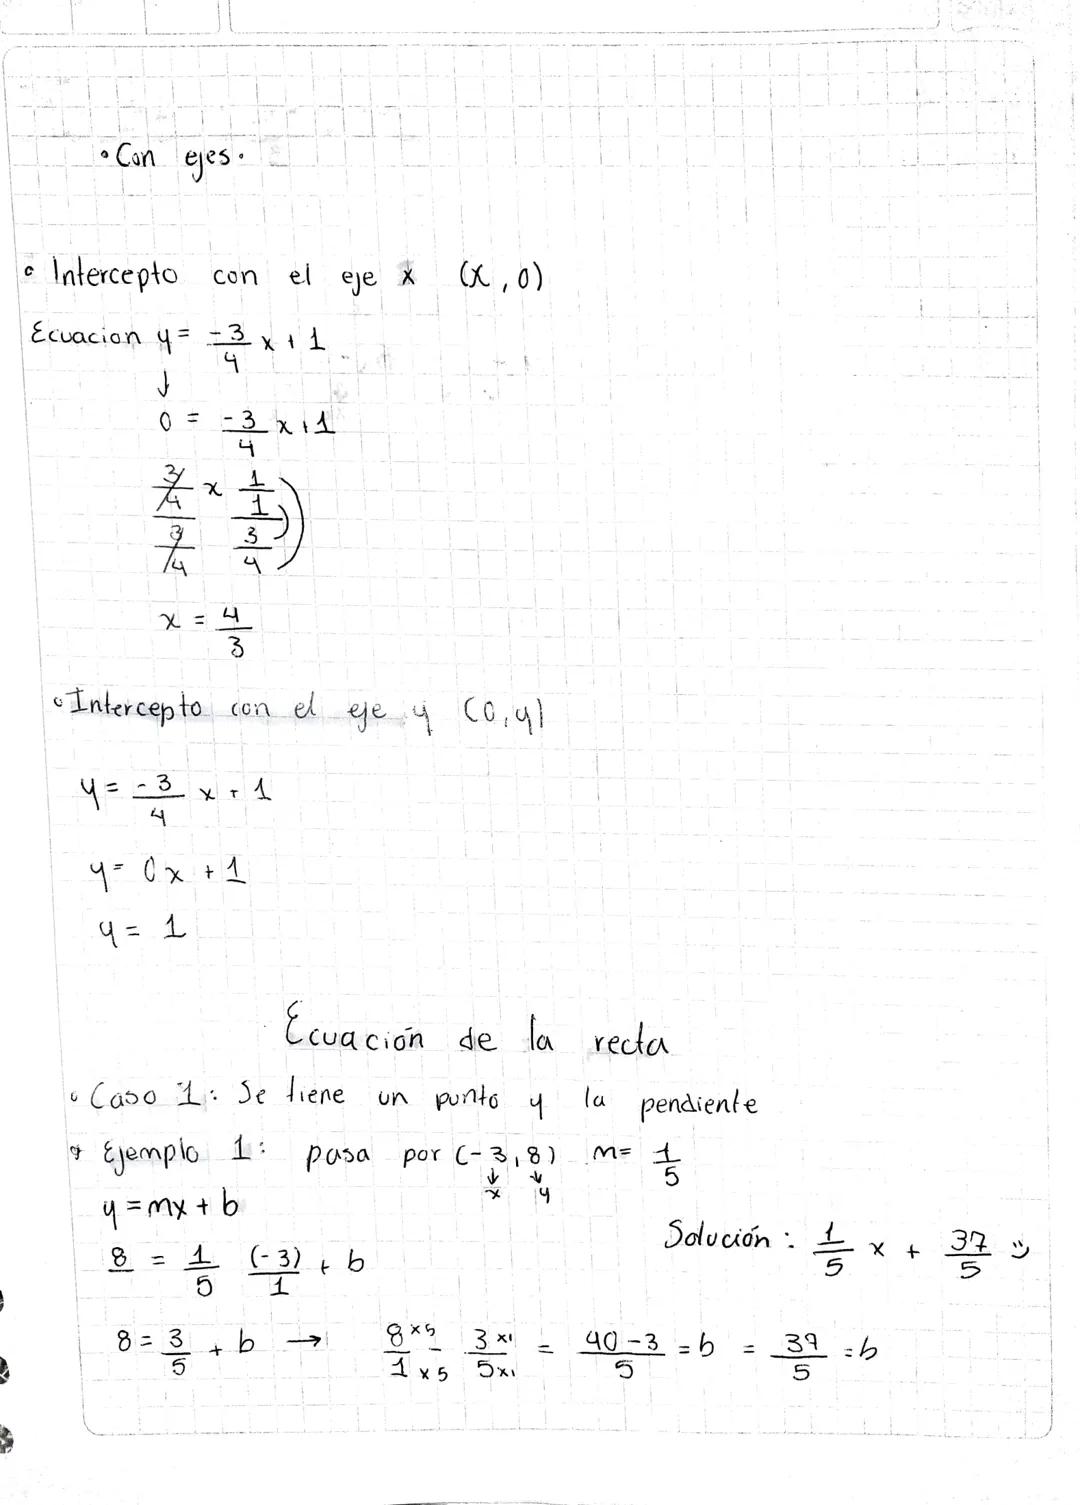 • Con ejes.
• Intercepto con el eje x (x, 0)
Ecuacion y = -3/4 x + 1
↓
0 = -3/4 x + 1
3/4 / 3/4 x 1/1 / 3/4
x = 4/3
• Intercepto con el eje y (0, y)
y = -3/4 x + 1
y = 0x + 1
y = 1
Ecuación de la recta
• Caso 1: Se tiene un punto y la pendiente
• Ejemplo 1: pasa por (-3, 8) m = 1/5
↓ ↓
x y
y = mx + b
Solución: 1/5 x + 37/5 :)
8 = 1/5 (-3)/1 + b
8 = 3/5 + b → 8 x5 / 1 x5 - 3 x1 / 5 x1 = 40 - 3 / 5 = b = 37/5 = b